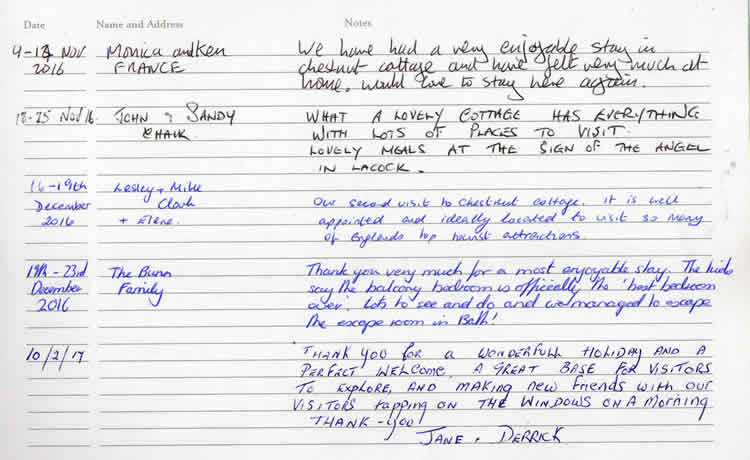 Date Name and Address Notes
4-13 Nov Monica and Ken We have had a very enjoyable stay in
2016 FRANCE chestnut cottage and have felt very much at
home, would love to stay here again.
18-25 Nov 16. JOHN & SANDY WHAT A LOVELY COTTAGE HAS EVERYTHING
CHALK WITH LOTS OF PLACES TO VISIT.
LOVELY MEALS AT THE SIGN OF THE ANGEL
IN LACOCK.
16-19th Lesley + Mike
December Clark Our second visit to Chestnut cottage. It is well
2016 + appointed and ideally located to visit so many
of Englands top tourist attractions.
19th - 23rd The Bunn Thank you very much for a most enjoyable stay. The kids
December Family say the balcony bedroom is officially the 'best bedroom
2016 ever'. Lots to see and do and we managed to escape
the escape room in Bath!
10/2/17 THANK YOU FOR A WONDERFULL HOLIDAY AND A
PERFECT WELCOME. A GREAT BASE FOR VISITORS
TO EXPLORE, AND MAKING NEW FRIENDS WITH OUR
VISITORS TAPPING ON THE WINDOWS ON A MORNING
THANK-YOU!
JANE & DERRICK